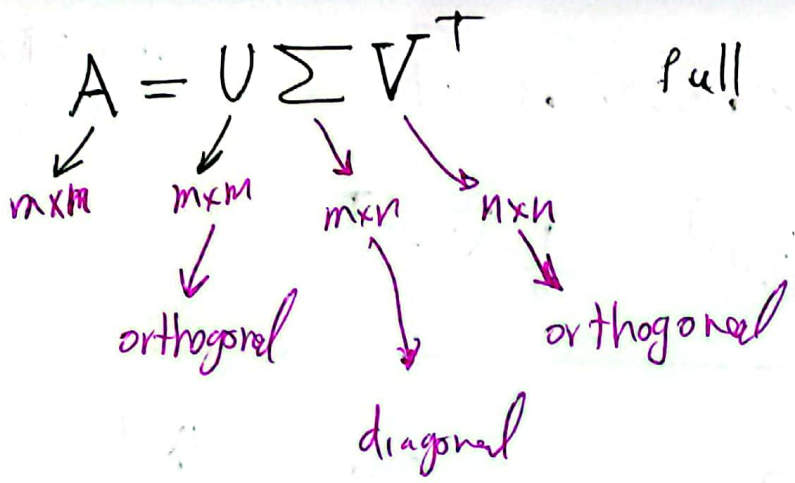 A = U Σ V^T full
m×m m×m m×n n×n
orthogonal orthogonal
diagonal